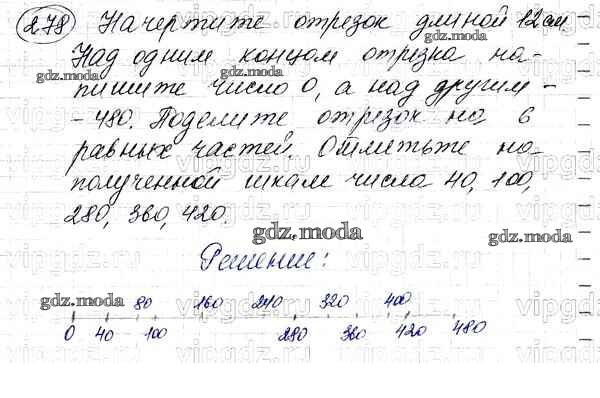 278 Начертите отрезок длиной 12 см.
Над одним концом отрезка на-
пишите число 0, а над другим -
- 480. Поделите отрезок на 6
равных частей. Отметьте на
полученной шкале числа 40, 100,
280, 360, 420.
Решение:
80 160 240 320 400
0 40 100 280 360 420 480
gdz.moda
gdz.moda
gdz.moda
gdz.moda
gdz.moda
gdz.moda
vipgdz.ru